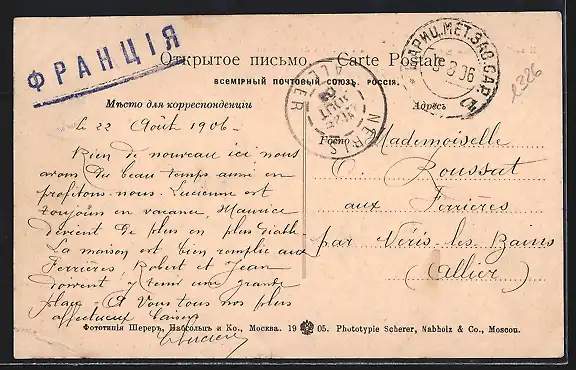 ФРАНЦІЯ
Открытое письмо. Carte Postale
ВСЕМІРНЫЙ ПОЧТОВЫЙ СОЮЗЪ. РОССІЯ.
Мѣсто для корреспонденціи
Адресъ
NERIS
ALLIER
le 22 Août 1906
Rien de nouveau ici nous
avons du beau temps aussi en
profitons-nous. Lucienne est
toujours en vacance, Maurice
devient de plus en plus diable
La maison est bien remplie aux
Ferrières, Robert et Jean
doivent y tenir une grande
place - A Vous tous nos plus
affectueux baisers
Mademoiselle
C. Roussat
aux Ferrières
par Néris-les-Bains
(Allier)
Фототипія Шереръ, Набгольцъ и Ко., Москва. 19 05. Phototypie Scherer, Nabholz & Co., Moscou.